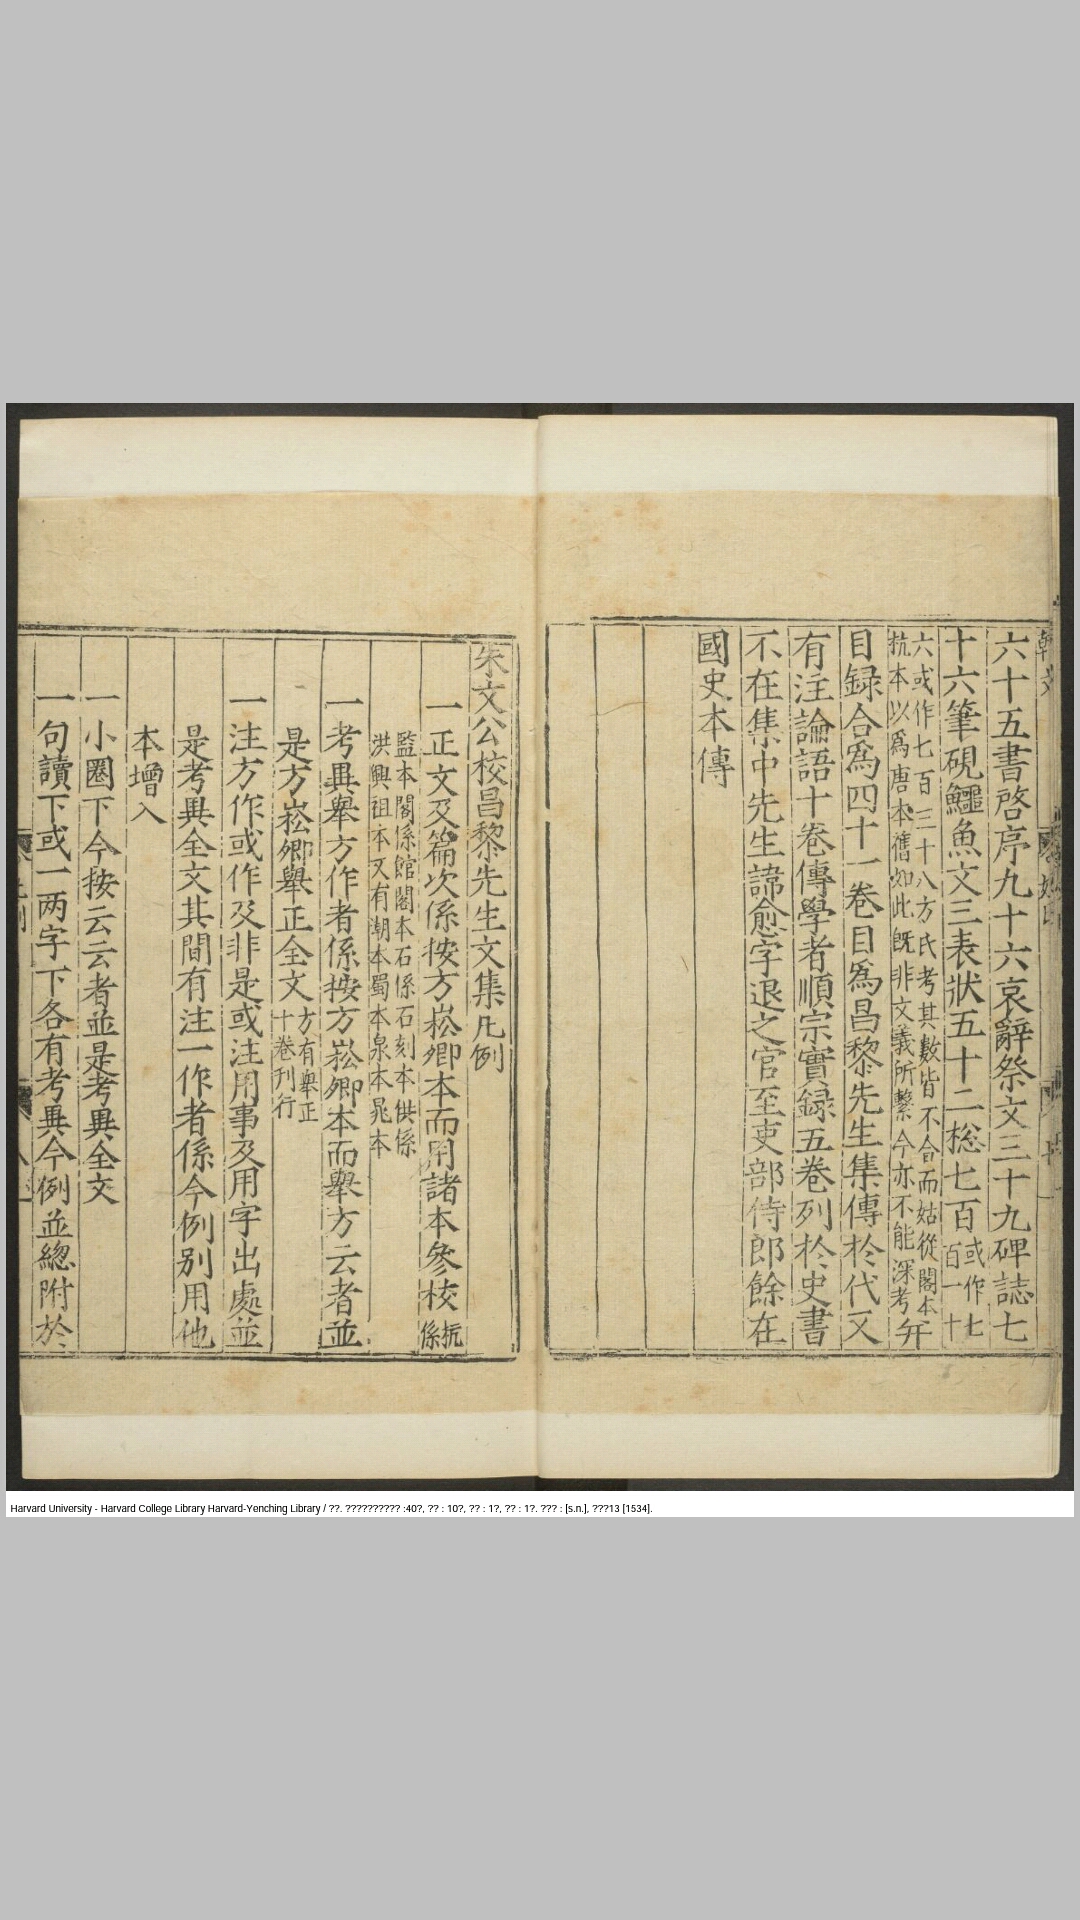 六十五書啓序九十六哀辭祭文三十九碑誌七
十六筆硯鱷魚文三表狀五十二捴七百或作七百一十
六或作七百三十八方氏考其數皆不合而姑從閣本
抗本以爲唐本舊如此旣非文義所繫今亦不能深考并
目録合爲四十一卷目爲昌黎先生集傳於代又
有注論語十卷傳學者順宗實録五卷列於史書
不在集中先生諱愈字退之官至吏部侍郎餘在
國史本傳
朱文公校昌黎先生文集凡例
一正文及篇次係按方崧卿本而用諸本參校抗係
監本閣係館閣本石係石刻本供係
洪興祖本又有潮本蜀本泉本晁本
一考異舉方作者係按方崧卿本而舉方云者並
是方崧卿舉正全文方有舉正十卷刊行
一注方作或作及非是或注用事及用字出處並
是考異全文其間有注一作者係今例别用他
本增入
一小圈下今按云云者並是考異全文
一句讀下或一两字下各有考異今例並總附於
Harvard University - Harvard College Library Harvard-Yenching Library / ??. ?????????? :40?, ?? : 10?, ?? : 1?, ?? : 1?. ??? : [s.n.], ???13 [1534].